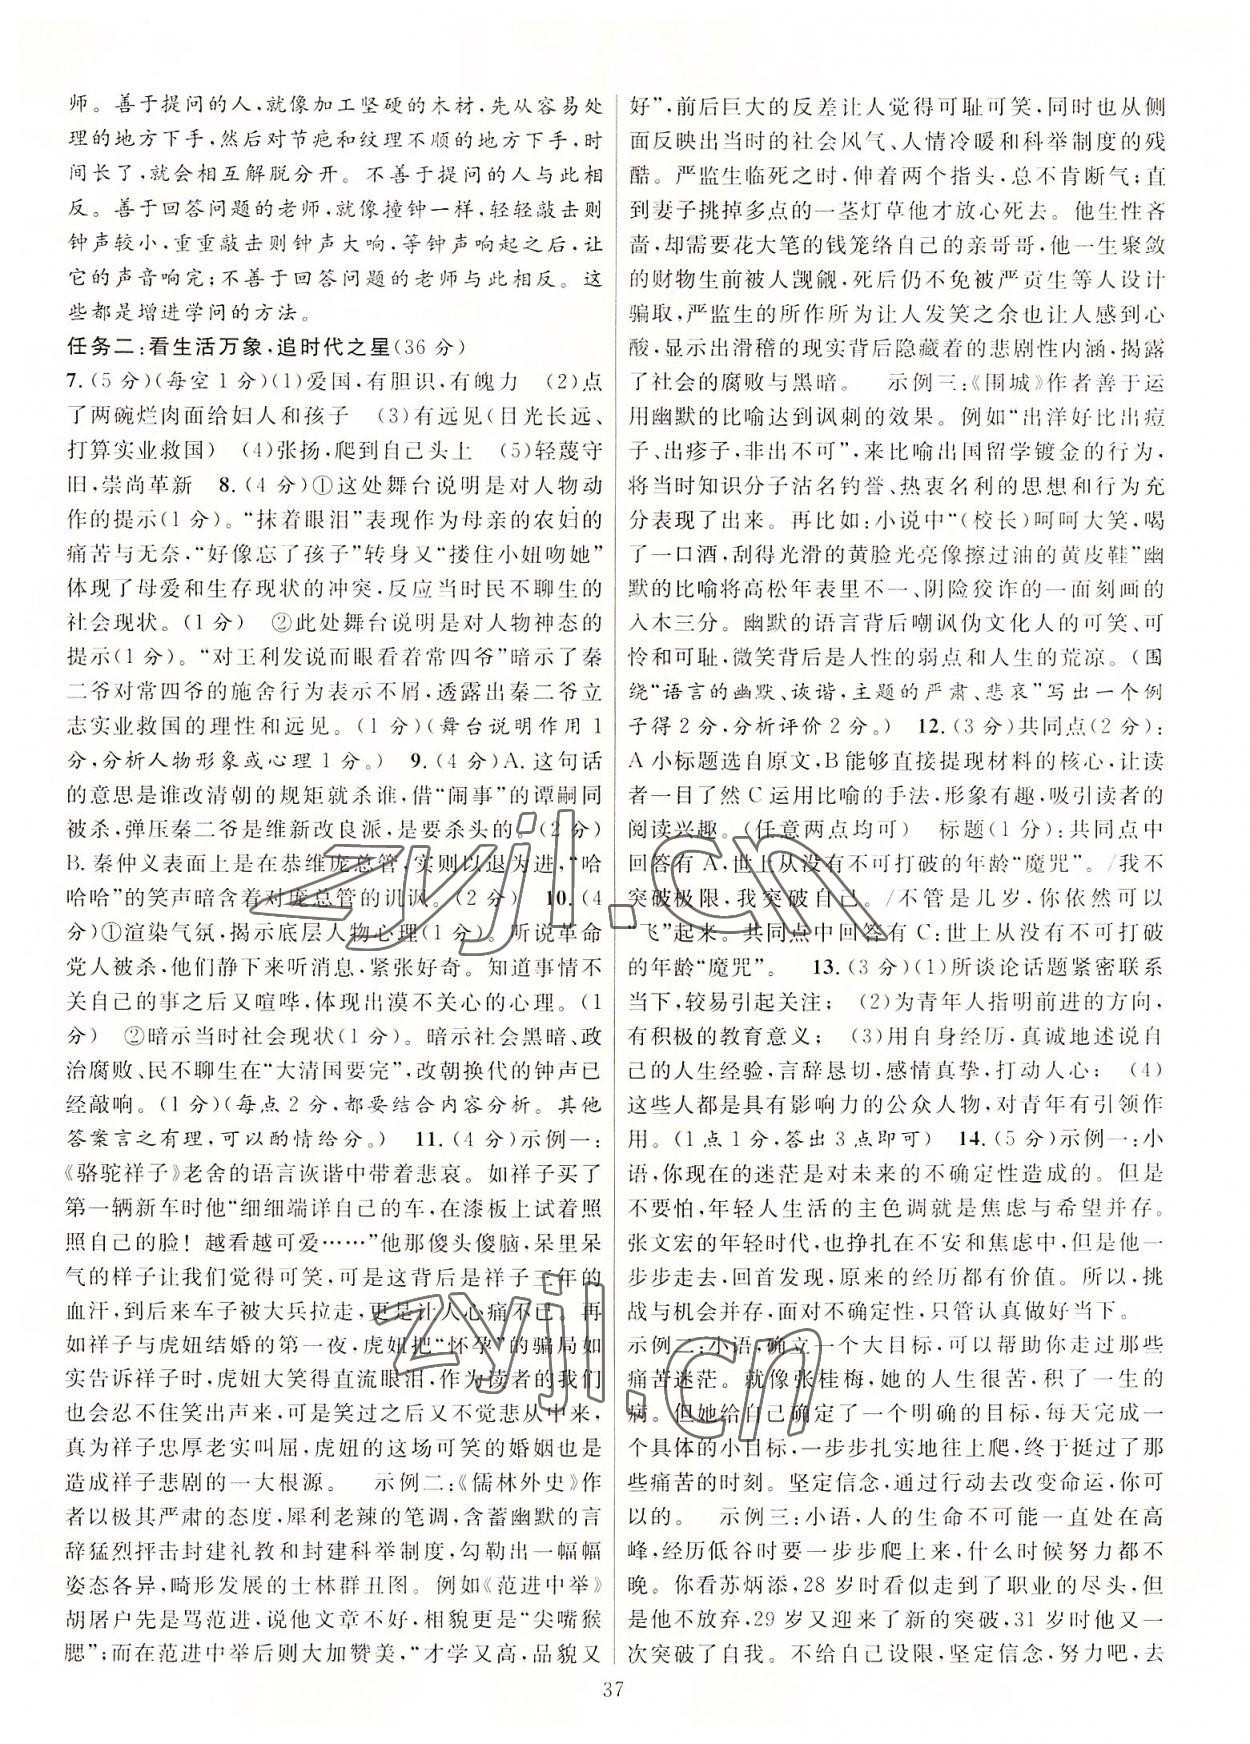 师。善于提问的人,就像加工坚硬的木材,先从容易处
理的地方下手,然后对节疤和纹理不顺的地方下手,时
间长了,就会相互解脱分开。不善于提问的人与此相
反。善于回答问题的老师,就像撞钟一样,轻轻敲击则
钟声较小,重重敲击则钟声大响,等钟声响起之后,让
它的声音响完;不善于回答问题的老师与此相反。这
些都是增进学问的方法。
任务二:看生活万象,追时代之星(36 分)
7.(5 分)(每空 1 分)(1)爱国,有胆识,有魄力 (2)点
了两碗烂肉面给妇人和孩子 (3)有远见(目光长远、
打算实业救国) (4)张扬,爬到自己头上 (5)轻蔑守
旧,崇尚革新 8.(4 分)①这处舞台说明是对人物动
作的提示(1 分)。“抹着眼泪”表现作为母亲的农妇的
痛苦与无奈,“好像忘了孩子”转身又“搂住小妞吻她”
体现了母爱和生存现状的冲突,反应当时民不聊生的
社会现状。(1 分) ②此处舞台说明是对人物神态的
提示(1 分)。“对王利发说而眼看着常四爷”暗示了秦
二爷对常四爷的施舍行为表示不屑,透露出秦二爷立
志实业救国的理性和远见。(1 分)(舞台说明作用 1
分,分析人物形象或心理 1 分。) 9.(4 分)A. 这句话
的意思是谁改清朝的规矩就杀谁,借“闹事”的谭嗣同
被杀,弹压秦二爷是维新改良派,是要杀头的。(2 分)
B. 秦仲义表面上是在恭维庞总管,实则以退为进,“哈
哈哈”的笑声暗含着对庞总管的讥讽。(2 分) 10.(4
分)①渲染气氛,揭示底层人物心理(1 分)。听说革命
党人被杀,他们静下来听消息,紧张好奇。知道事情不
关自己的事之后又喧哗,体现出漠不关心的心理。(1
分) ②暗示当时社会现状(1 分)。暗示社会黑暗、政
治腐败、民不聊生在“大清国要完”,改朝换代的钟声已
经敲响。(1 分)(每点 2 分,都要结合内容分析。其他
答案言之有理,可以酌情给分。) 11.(4 分)示例一:
《骆驼祥子》老舍的语言诙谐中带着悲哀。如祥子买了
第一辆新车时他“细细端详自己的车,在漆板上试着照
照自己的脸!越看越可爱……”他那傻头傻脑,呆里呆
气的样子让我们觉得可笑,可是这背后是祥子三年的
血汗,到后来车子被大兵拉走,更是让人心痛不已。再
如祥子与虎妞结婚的第一夜,虎妞把“怀孕”的骗局如
实告诉祥子时,虎妞大笑得直流眼泪,作为读者的我们
也会忍不住笑出声来,可是笑过之后又不觉悲从中来,
真为祥子忠厚老实叫屈,虎妞的这场可笑的婚姻也是
造成祥子悲剧的一大根源。 示例二:《儒林外史》作
者以极其严肃的态度,犀利老辣的笔调,含蓄幽默的言
辞猛烈抨击封建礼教和封建科举制度,勾勒出一幅幅
姿态各异,畸形发展的士林群丑图。例如《范进中举》
胡屠户先是骂范进,说他文章不好,相貌更是“尖嘴猴
腮”;而在范进中举后则大加赞美,“才学又高,品貌又
好”,前后巨大的反差让人觉得可耻可笑,同时也从侧
面反映出当时的社会风气、人情冷暖和科举制度的残
酷。严监生临死之时,伸着两个指头,总不肯断气;直
到妻子挑掉多点的一茎灯草他才放心死去。他生性吝
啬,却需要花大笔的钱笼络自己的亲哥哥,他一生聚敛
的财物生前被人觊觎,死后仍不免被严贡生等人设计
骗取,严监生的所作所为让人发笑之余也让人感到心
酸,显示出滑稽的现实背后隐藏着的悲剧性内涵,揭露
了社会的腐败与黑暗。 示例三:《围城》作者善于运
用幽默的比喻达到讽刺的效果。例如“出洋好比出痘
子、出疹子,非出不可”,来比喻出国留学镀金的行为,
将当时知识分子沽名钓誉、热衷名利的思想和行为充
分表现了出来。再比如:小说中“(校长)呵呵大笑,喝
了一口酒,刮得光滑的黄脸光亮像擦过油的黄皮鞋”幽
默的比喻将高松年表里不一、阴险狡诈的一面刻画的
入木三分。幽默的语言背后嘲讽伪文化人的可笑、可
怜和可耻,微笑背后是人性的弱点和人生的荒凉。(围
绕“语言的幽默、诙谐,主题的严肃、悲哀”写出一个例
子得 2 分,分析评价 2 分。) 12.(3 分)共同点(2 分):
A 小标题选自原文,B 能够直接提现材料的核心,让读
者一目了然 C 运用比喻的手法,形象有趣,吸引读者的
阅读兴趣。(任意两点均可) 标题(1 分):共同点中
回答有 A,世上从没有不可打破的年龄“魔咒”。/我不
突破极限,我突破自己。/不管是几岁,你依然可以
“飞”起来。共同点中回答有 C:世上从没有不可打破
的年龄“魔咒”。 13.(3 分)(1)所谈论话题紧密联系
当下,较易引起关注; (2)为青年人指明前进的方向,
有积极的教育意义; (3)用自身经历,真诚地述说自
己的人生经验,言辞恳切,感情真挚,打动人心; (4)
这些人都是具有影响力的公众人物,对青年有引领作
用。(1 点 1 分,答出 3 点即可) 14.(5 分)示例一:小
语,你现在的迷茫是对未来的不确定性造成的。但是
不要怕,年轻人生活的主色调就是焦虑与希望并存。
张文宏的年轻时代,也挣扎在不安和焦虑中,但是他一
步步走去,回首发现,原来的经历都有价值。所以,挑
战与机会并存,面对不确定性,只管认真做好当下。
示例二:小语,确立一个大目标,可以帮助你走过那些
痛苦迷茫。就像张桂梅,她的人生很苦,积了一生的
病。但她给自己确定了一个明确的目标,每天完成一
个具体的小目标,一步步扎实地往上爬,终于挺过了那
些痛苦的时刻。坚定信念,通过行动去改变命运,你可
以的。 示例三:小语,人的生命不可能一直处在高
峰,经历低谷时要一步步爬上来,什么时候努力都不
晚。你看苏炳添,28 岁时看似走到了职业的尽头,但
是他不放弃,29 岁又迎来了新的突破,31 岁时他又一
次突破了自我。不给自己设限,坚定信念,努力吧,去
37
zyjl.cn
zyjl.cn